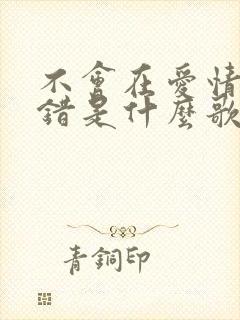 不會在愛情
錯是什麼歌
青銅印